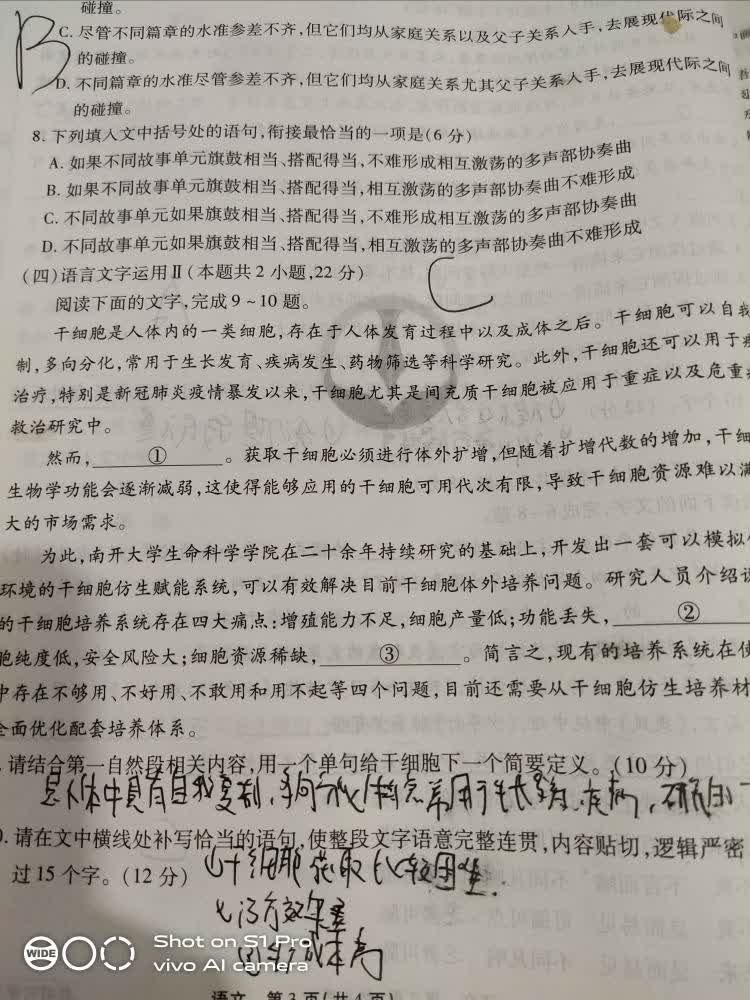 碰撞。
C. 尽管不同篇章的水准参差不齐,但它们均从家庭关系以及父子关系入手,去展现代际之间
的碰撞。
B
D. 不同篇章的水准尽管参差不齐,但它们均从家庭关系尤其父子关系入手,去展现代际之间
的碰撞。
8. 下列填入文中括号处的语句,衔接最恰当的一项是(6 分)
A. 如果不同故事单元旗鼓相当、搭配得当,不难形成相互激荡的多声部协奏曲
B. 如果不同故事单元旗鼓相当、搭配得当,相互激荡的多声部协奏曲不难形成
C. 不同故事单元如果旗鼓相当、搭配得当,不难形成相互激荡的多声部协奏曲
D. 不同故事单元如果旗鼓相当、搭配得当,相互激荡的多声部协奏曲不难形成
(四)语言文字运用Ⅱ(本题共 2 小题,22 分)
C
阅读下面的文字,完成 9～10 题。
干细胞是人体内的一类细胞,存在于人体发育过程中以及成体之后。干细胞可以自我
制,多向分化,常用于生长发育、疾病发生、药物筛选等科学研究。此外,干细胞还可以用于
治疗,特别是新冠肺炎疫情暴发以来,干细胞尤其是间充质干细胞被应用于重症以及危重
救治研究中。
然而, ① 。获取干细胞必须进行体外扩增,但随着扩增代数的增加,干细
生物学功能会逐渐减弱,这使得能够应用的干细胞可用代次有限,导致干细胞资源难以满
大的市场需求。
为此,南开大学生命科学学院在二十余年持续研究的基础上,开发出一套可以模拟
环境的干细胞仿生赋能系统,可以有效解决目前干细胞体外培养问题。研究人员介绍说
的干细胞培养系统存在四大痛点:增殖能力不足,细胞产量低;功能丢失, ②
胞纯度低,安全风险大;细胞资源稀缺, ③ 。简言之,现有的培养系统在使
中存在不够用、不好用、不敢用和用不起等四个问题,目前还需要从干细胞仿生培养材
全面优化配套培养体系。
. 请结合第一自然段相关内容,用一个单句给干细胞下一个简要定义。(10 分)
是人体中具有自我复制,多向分化特点常用于生长发育、疾病,研究的一
0. 请在文中横线处补写恰当的语句,使整段文字语意完整连贯,内容贴切,逻辑严密
过 15 个字。(12 分)
(1)干细胞获取比较困难.
治疗效果差
(3)成本高
WIDE
Shot on S1 Pro
vivo AI camera
语文 第 3 页(共 4 页)